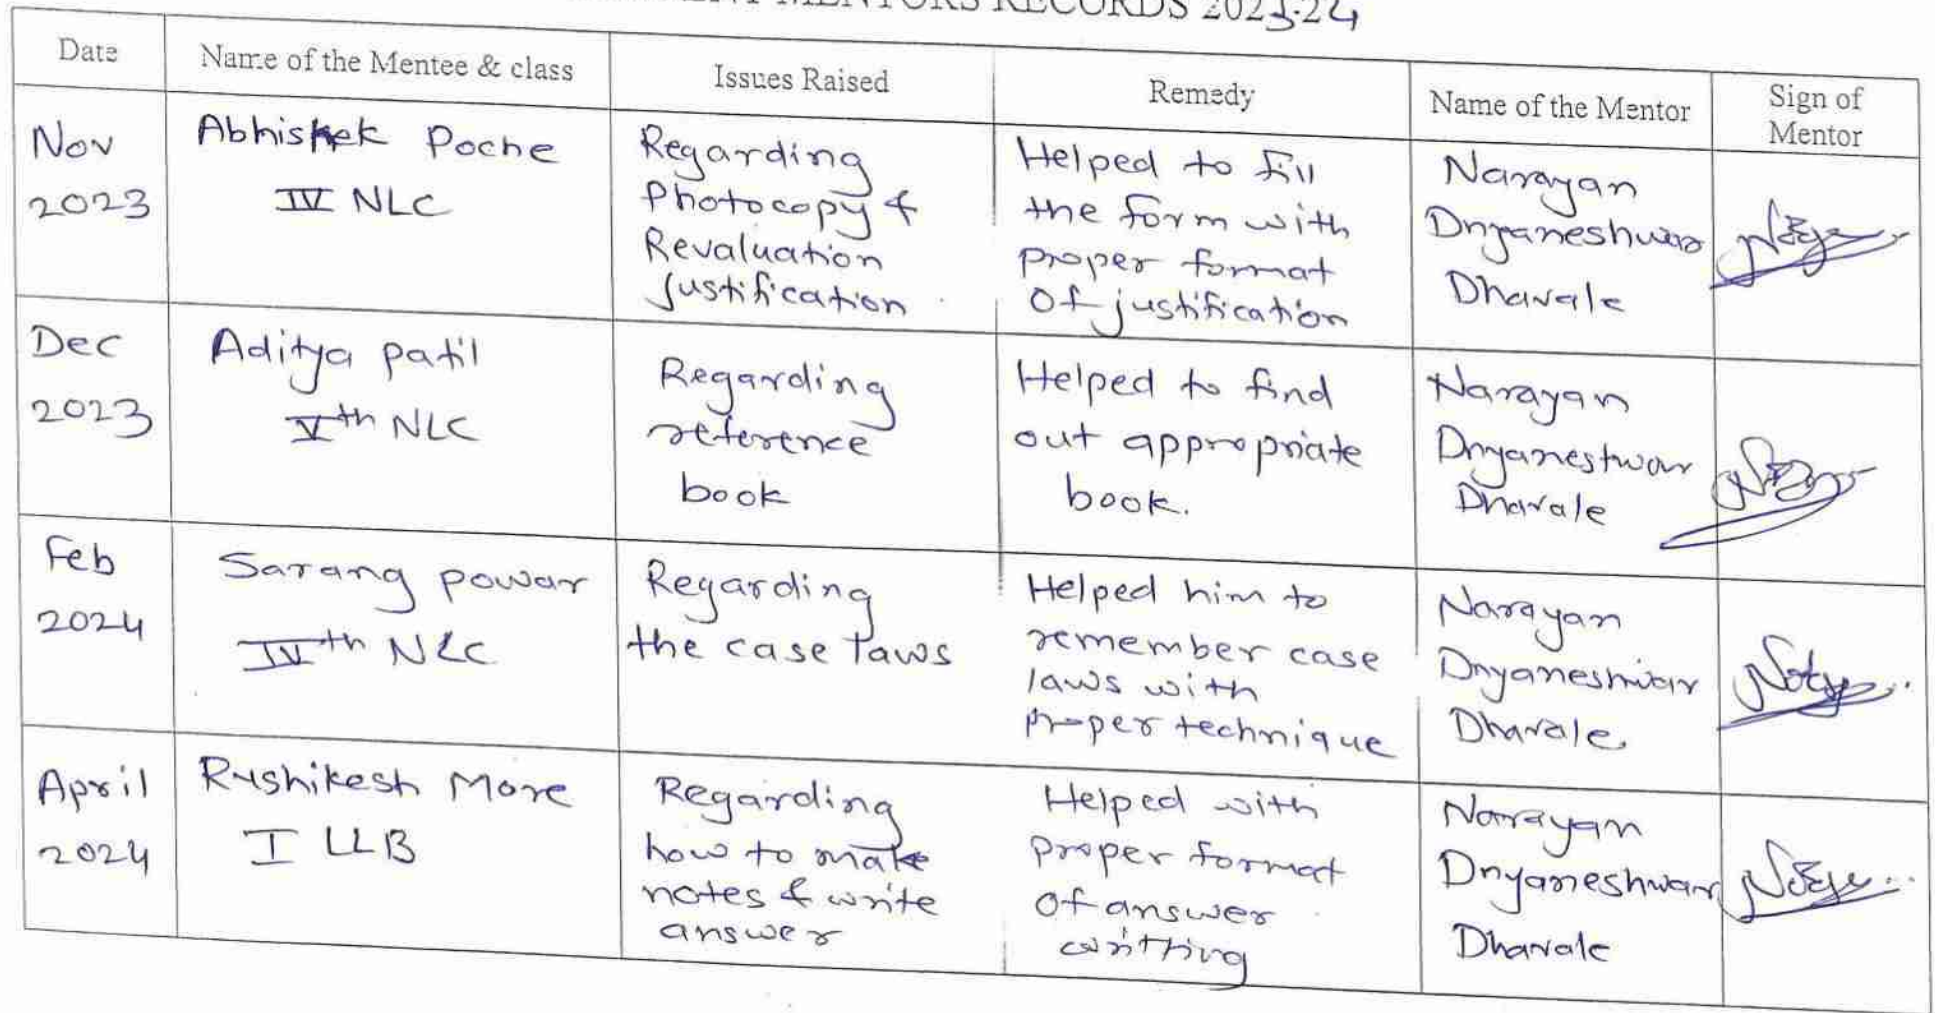 MENTORS RECORDS 2023-24
Date
Name of the Mentee & class
Issues Raised
Remedy
Name of the Mentor
Sign of
Mentor
Nov
2023
Abhishek Poche
IV NLC
Regarding
Photocopy &
Revaluation
Justification
Helped to fill
the form with
proper format
of justification
Narayan
Dnyaneshwar
Dhavale
Dec
2023
Aditya patil
Vth NLC
Regarding
reference
book
Helped to find
out appropriate
book.
Narayan
Dnyaneshwar
Dhavale
Feb
2024
Sarang powar
IVth NLC
Regarding
the case laws
Helped him to
remember case
laws with
proper technique
Narayan
Dnyaneshwar
Dhavale.
April
2024
Rushikesh More
I LLB
Regarding
how to make
notes & write
answer
Helped with
proper format
of answer
writting
Narayan
Dnyaneshwar
Dhavale